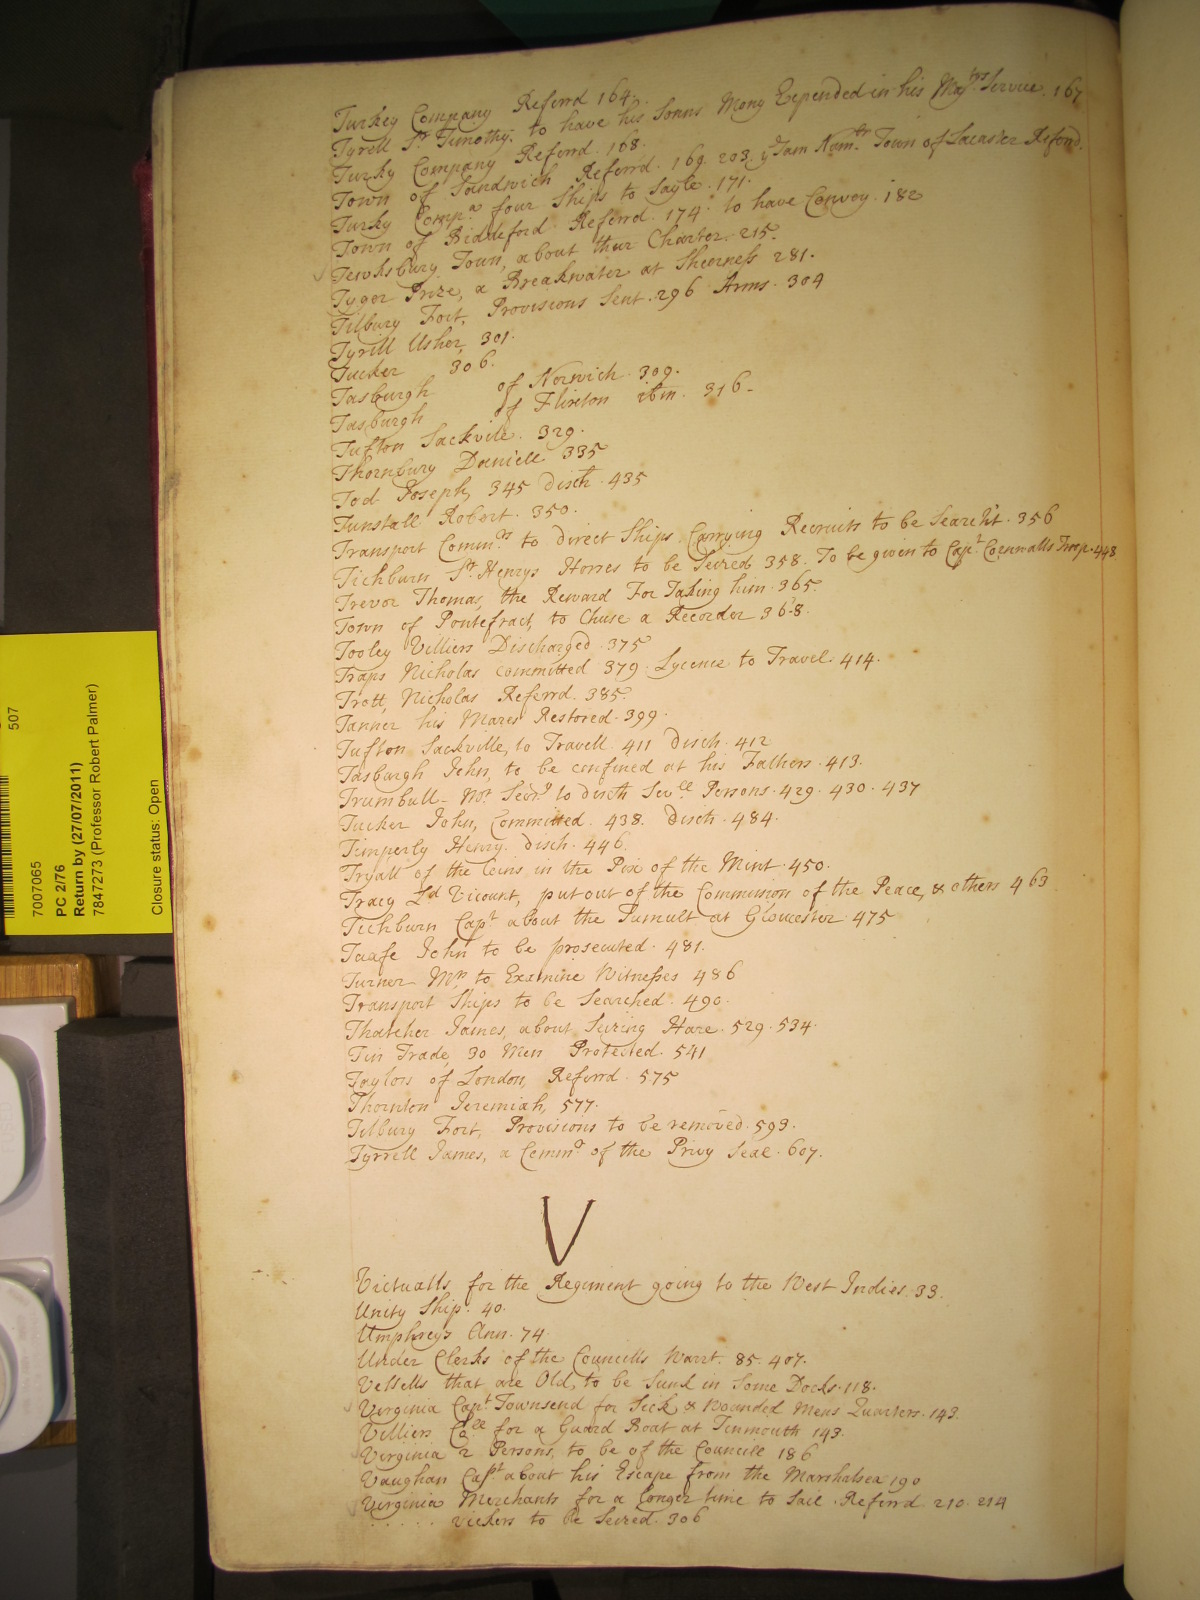 Turkey Company Referrd 164.
Tyrell Sr. Timothy. to have his Sonns Mony Expended in his Majts. Service. 167
Turky Company Referrd. 168.
Town of Sandwich Referrd. 169. 203. Town of Referrd.
Turky Compa. four Ships to Sayle. 171.
Town of Biddeford Referrd. 174. to have Convoy. 182
Tewksbury Town, about their Charter. 215.
Tyger Prize, a Breakwater at Sheerness 281.
Tilbury Fort, Provisions Sent. 296 Arms. 304
Tyrill Usher, 301.
Tucker 306.
Tasburgh of Norwich. 309.
Tasburgh of Flixton ibm. 316.
Tufton Sackvile. 329.
Thornbury Daniell 335
Tod Joseph, 345 disch. 435
Tunstall Robert. 350.
Transport Commrs. to direct Ships Carrying Recruits to be Searcht. 356
Tichburn Sr. Henrys Horses to be Seized 358. To be given to Capt. Cornwalls Troop. 448
Trevor Thomas, the Reward For Taking him. 365.
Town of Pontefract, to Chuse a Recorder 368.
Tooley Villiers Discharged. 375
Traps Nicholas committed 379. Lycence to Travel. 414.
Trott, Nicholas Referrd. 385.
Tanner his Mares Restored. 399.
Tufton Sackville, to Travell. 411 Disch. 412
Tasburgh John, to be confined at his Fathers. 413.
Trumbull Mr. Secry. to disch Sevll. Persons. 429. 430. 437
Tucker John, Committed. 438. Disch. 484.
Timperly Henry. disch. 446.
Tryall of the Coins in the Pix of the Mint. 450.
Tracy Ld. Vicount, put out of the Commission of the Peace, & others 463
Tichburn Capt. about the Tumult at Gloucester 475
Taafe John to be prosecuted. 481.
Turner Mr. to Examine Witnesses 486
Transport Ships to be Searched. 490.
Thatcher James, about Seizing Hare. 529. 534.
Tin Trade, 30 Men Protected. 541
Taylors of London, Referrd. 575
Thornton Jeremiah, 577.
Tilbury Fort, Provisions to be removed. 593.
Tyrrell James, a Commr. of the Privy Seal. 607.
V
Victualls for the Regiment going to the West Indies. 33.
Unity Ship. 40.
Umphreys Ann. 74.
Under Clerks of the Councills Warrt. 85. 407.
Vessells that are Old, to be Sunk in Some Docks. 118.
Virginia Capt. Townsend for Sick & Wounded Mens Quarters. 143.
Villiers Coll. for a Guard Boat at Tinmouth 143.
Virginia 2 Persons, to be of the Councill 186
Vaughan Capt. about his Escape from the Marshalsea 190
Virginia Merchants for a longer time to Sail. Referrd 210. 214
. . . . . Vickers to be Seized. 306
507
7007065
PC 2/76
Return by (27/07/2011)
7847273 (Professor Robert Palmer)
Closure status: Open